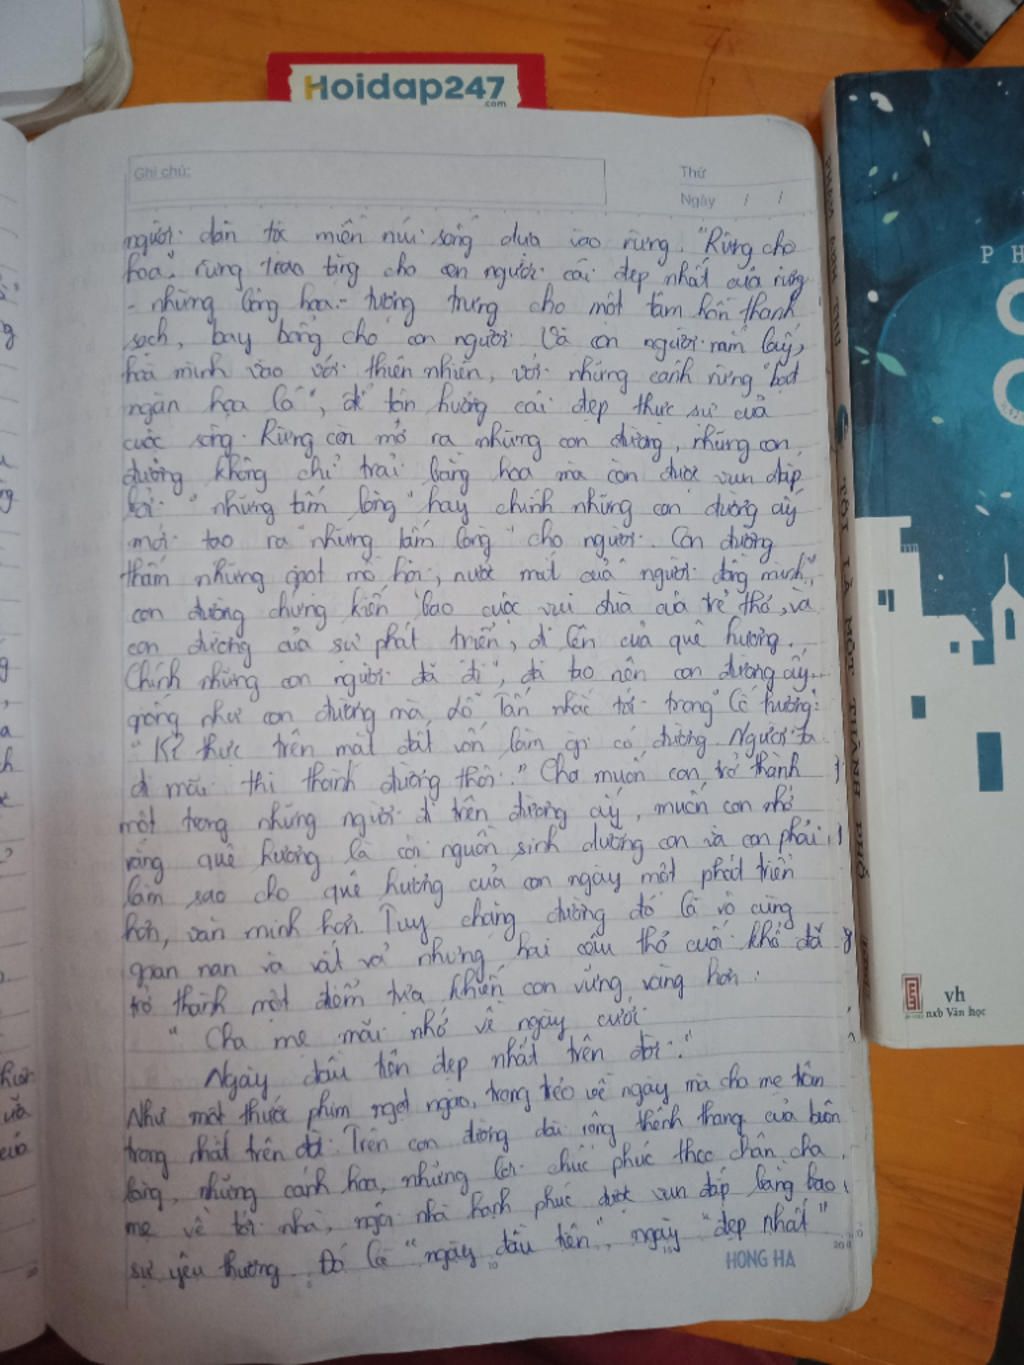 Hoidap247
.com
Ghi chú:
Thứ
Ngày / /
người dân tộc miền núi sống dựa vào rừng. "Rừng cho
hoa": rừng trao tặng cho con người cái đẹp nhất của rừng
- những bông hoa - tượng trưng cho một tâm hồn thanh
sạch, bay bổng cho con người. Và con người nắm lấy,
hòa mình vào với thiên nhiên, với những cánh rừng "bạt
ngàn hoa lá", để tận hưởng cái đẹp thực sự của
cuộc sống. Rừng còn mở ra những con đường, những con
đường không chỉ trải bằng hoa mà còn được vun đắp
bởi "những tấm lòng" hay chính những con đường ấy
mới tạo ra "những tấm lòng" cho người. Con đường
thấm những giọt mồ hôi, nước mắt của "người đồng mình",
con đường chứng kiến bao cuộc vui đùa của trẻ thơ, và
con đường của sự phát triển, đi lên của quê hương.
Chính những con người đã "đi", đã tạo nên con đường ấy..
giống như con đường mà Lỗ Tấn nhắc tới trong "Cố hương":
"Kì thực trên mặt đất vốn làm gì có đường. Người ta
đi mãi thì thành đường thôi." Cha muốn con trở thành
một trong những người đi trên đường ấy, muốn con nhớ
rằng quê hương là cội nguồn sinh dưỡng con và con phải
làm sao cho quê hương của con ngày một phát triển
hơn, văn minh hơn. Tuy chặng đường đó là vô cùng
gian nan và vất vả nhưng hai câu thơ cuối khổ đã
trở thành một điểm tựa khiến con vững vàng hơn:
"Cha mẹ mãi nhớ về ngày cưới
Ngày đầu tiên đẹp nhất trên đời."
Như một thước phim ngọt ngào, trong trẻo về ngày mà cha mẹ trân
trọng nhất trên đời. Trên con đường dài rộng thênh thang của bản
làng, những cánh hoa, những lời chúc phúc theo chân cha
mẹ về tới nhà, ngôi nhà hạnh phúc được vun đắp bằng bao
sự yêu thương. Đó là "ngày đầu tiên", ngày "đẹp nhất"
HONG HA
TÔI LÀ MỘT THÀNH PHỐ
PH
vh
nxb Văn học